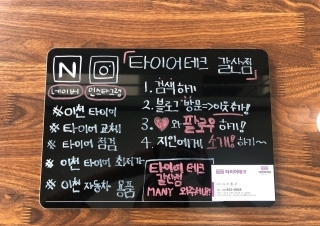 N
네이버 인스타그램
「타이어테크 갈산점」
1. 검색하기
2. 블로그 방문=>이웃추가!
3. ♥와 팔로우하기!
4. 지인에게 소개!하기~
※ 이천 타이어
※ 타이어 교체
※ 타이어 점검
※ 이천 타이어 최저가
※ 이천 자동차 용품
타이어테크
갈산점
MANY 와주세요!!
타이어테크